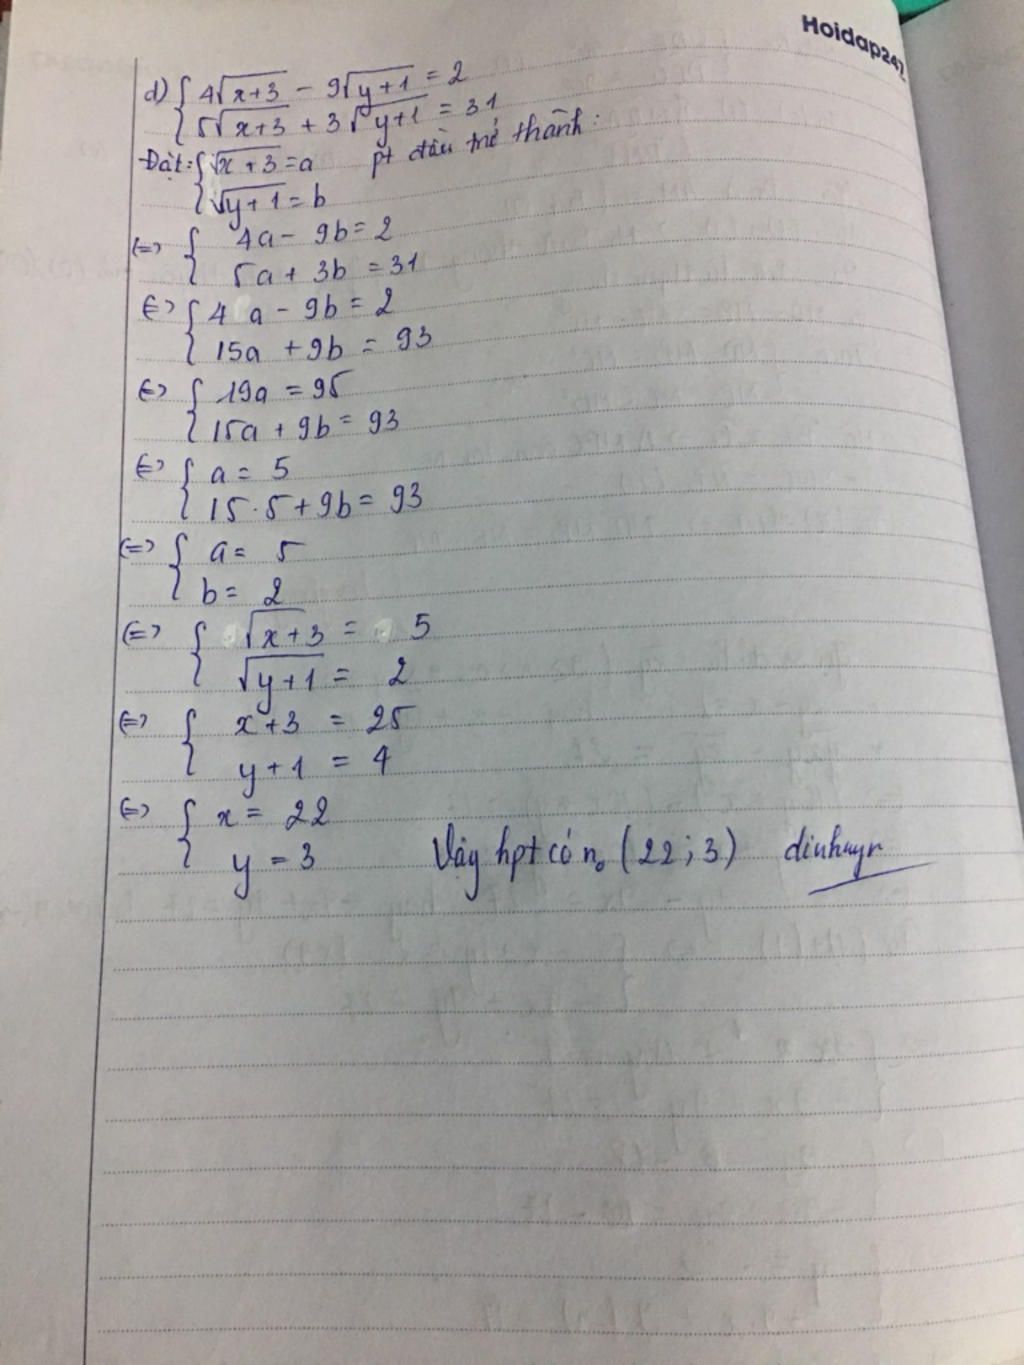 Hoidap247
d) { 4√(x+3) - 9√(y+1) = 2
{ 5√(x+3) + 3√(y+1) = 31
Đặt: { √(x+3) = a pt đầu trở thành:
{ √(y+1) = b
(=) { 4a - 9b = 2
{ 5a + 3b = 31
(=) { 4a - 9b = 2
{ 15a + 9b = 93
(=) { 19a = 95
{ 15a + 9b = 93
(=) { a = 5
{ 15.5 + 9b = 93
(=) { a = 5
{ b = 2
(=) { √(x+3) = 5
{ √(y+1) = 2
(=) { x+3 = 25
{ y+1 = 4
(=) { x = 22
{ y = 3 Vậy hpt có no (22; 3)